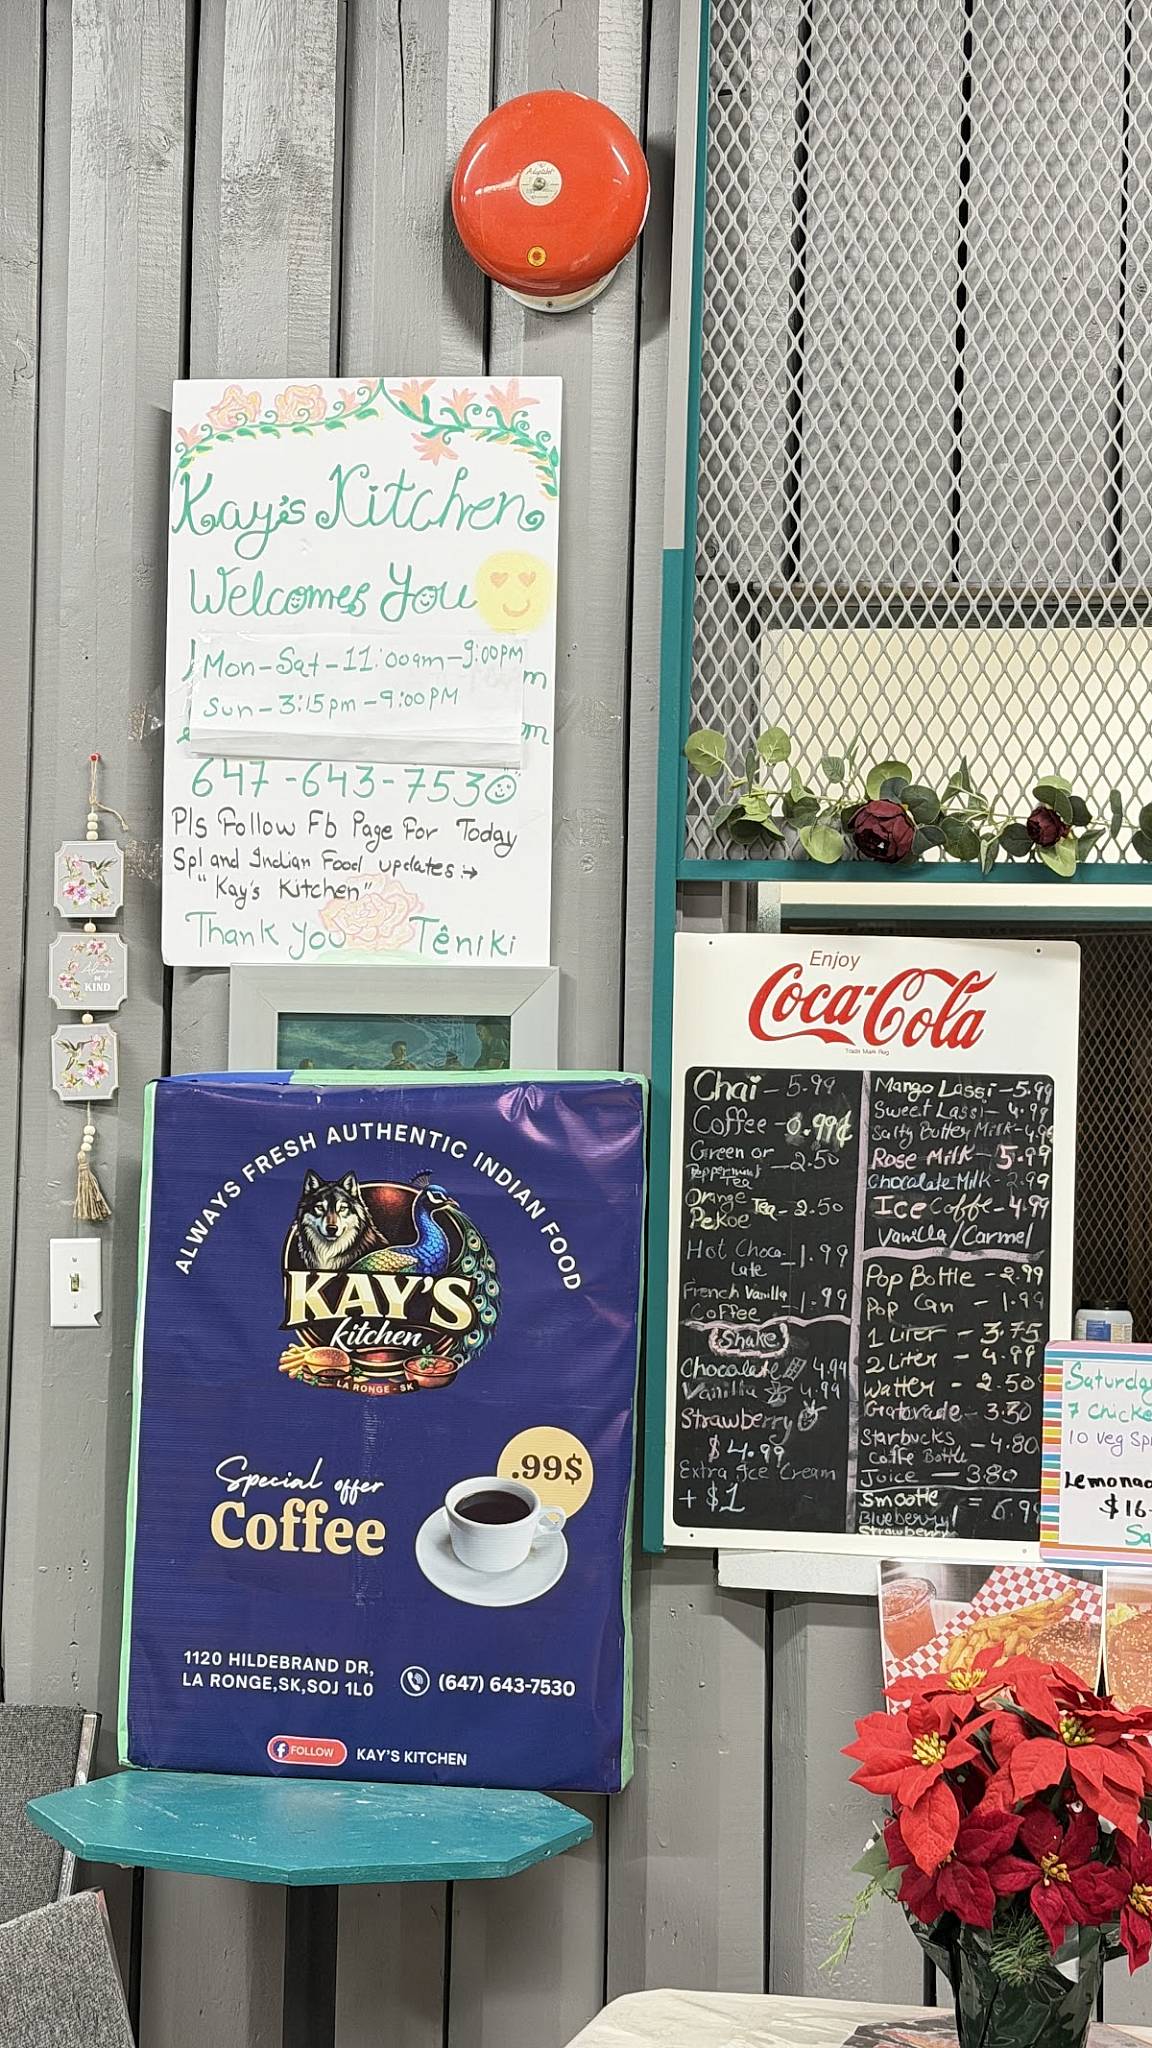 Kay's Kitchen
Welcomes You
Mon-Sat-11:00am-9:00PM
Sun-3:15pm-9:00PM
647-643-7530
Pls Follow Fb Page For Today
Spl and Indian Food updates:→
"Kay's Kitchen"
Thank you Têniki
Always
BE
KIND
ALWAYS FRESH AUTHENTIC INDIAN FOOD
KAY'S
kitchen
LA RONGE - SK
Special offer
Coffee
.99$
1120 HILDEBRAND DR,
LA RONGE,SK,SOJ 1L0
(647) 643-7530
FOLLOW KAY'S KITCHEN
Enjoy
Coca-Cola
Trade Mark Reg
Chai - 5.99
Coffee - 0.99¢
Green or
Peppermint - 2.50
Tea
Orange Tea - 2.50
Pekoe
Hot Choco- - 1.99
Late
French Vanilla - 1.99
Coffee
Shake
Chocolate 4.99
Vanilla 4.99
Strawberry
$4.99
Extra Ice Cream
+ $1
Mango Lassi - 5.99
Sweet Lassi - 4.99
Salty Butter Milk -
Rose Milk - 5.99
Chocolate Milk - 2.99
Ice Coffe - 4.99
Vanilla/Carmel
Pop Bottle - 2.99
Pop Can - 1.99
1 Liter - 3.75
2 Liter - 4.99
Watter - 2.50
Gatorade - 3.50
Starbucks - 4.80
Coffe Bottle
Juice - 3.80
Smootie = 6.99
Blueberry/
Strawberry
Saturday
7 Chicke
10 Veg Sp
Lemonad
$16.
Sa